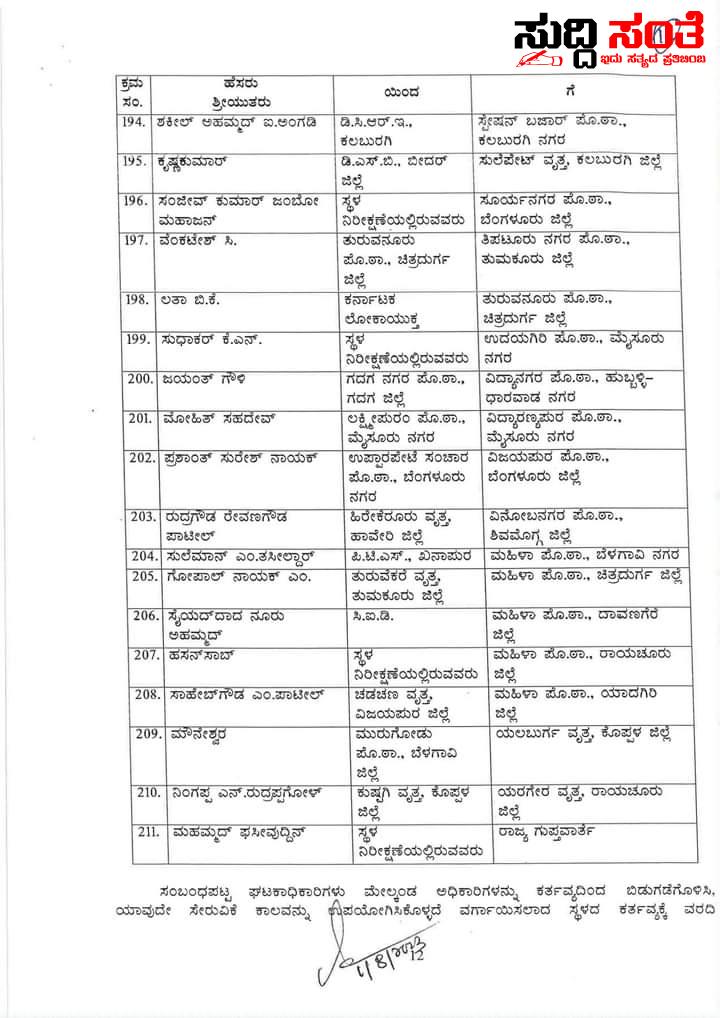 ಸುದ್ದಿ ಸಂತೆ
ಇದು ಸತ್ಯದ ಪ್ರತಿಬಿಂಬ
ಕ್ರಮ ಸಂ. ಹೆಸರು ಶ್ರೀಯುತರು ಯಿಂದ ಗೆ
194. ಶಕೀಲ್ ಅಹಮ್ಮದ್ ಐ.ಅಂಗಡಿ ಡಿ.ಸಿ.ಆರ್.ಇ., ಸ್ಟೇಷನ್ ಬಜಾರ್ ಪೊ.ಠಾ.,
ಕಲಬುರಗಿ ಕಲಬುರಗಿ ನಗರ
195. ಕೃಷ್ಣಕುಮಾರ್ ಡಿ.ಎಸ್.ಬಿ., ಬೀದರ್ ಸುಲೆಪೇಟ್ ವೃತ್ತ, ಕಲಬುರಗಿ ಜಿಲ್ಲೆ
ಜಿಲ್ಲೆ
196. ಸಂಜೀವ್ ಕುಮಾರ್ ಜಂಬೋ ಸ್ಥಳ ಸೂರ್ಯನಗರ ಪೊ.ಠಾ.,
ಮಹಾಜನ್ ನಿರೀಕ್ಷಣೆಯಲ್ಲಿರುವವರು ಬೆಂಗಳೂರು ಜಿಲ್ಲೆ
197. ವೆಂಕಟೇಶ್ ಸಿ. ತುರುವನೂರು ತಿಪಟೂರು ನಗರ ಪೊ.ಠಾ.,
ಪೊ.ಠಾ., ಚಿತ್ರದುರ್ಗ ತುಮಕೂರು ಜಿಲ್ಲೆ
ಜಿಲ್ಲೆ
198. ಲತಾ ಬಿ.ಕೆ. ಕರ್ನಾಟಕ ತುರುವನೂರು ಪೊ.ಠಾ.,
ಲೋಕಾಯುಕ್ತ ಚಿತ್ರದುರ್ಗ ಜಿಲ್ಲೆ
199. ಸುಧಾಕರ್ ಕೆ.ಎನ್. ಸ್ಥಳ ಉದಯಗಿರಿ ಪೊ.ಠಾ., ಮೈಸೂರು
ನಿರೀಕ್ಷಣೆಯಲ್ಲಿರುವವರು ನಗರ
200. ಜಯಂತ್ ಗೌಳಿ ಗದಗ ನಗರ ಪೊ.ಠಾ., ವಿದ್ಯಾನಗರ ಪೊ.ಠಾ., ಹುಬ್ಬಳ್ಳಿ–
ಗದಗ ಜಿಲ್ಲೆ ಧಾರವಾಡ ನಗರ
201. ಮೋಹಿತ್ ಸಹದೇವ್ ಲಕ್ಷ್ಮೀಪುರಂ ಪೊ.ಠಾ., ವಿದ್ಯಾರಣ್ಯಪುರ ಪೊ.ಠಾ.,
ಮೈಸೂರು ನಗರ ಮೈಸೂರು ನಗರ
202. ಪ್ರಶಾಂತ್ ಸುರೇಶ್ ನಾಯಕ್ ಉಪ್ಪಾರಪೇಟೆ ಸಂಚಾರ ವಿಜಯಪುರ ಪೊ.ಠಾ.,
ಪೊ.ಠಾ., ಬೆಂಗಳೂರು ಬೆಂಗಳೂರು ಜಿಲ್ಲೆ
ನಗರ
203. ರುದ್ರಗೌಡ ರೇವಣಗೌಡ ಹಿರೇಕೆರೂರು ವೃತ್ತ, ವಿನೋಬನಗರ ಪೊ.ಠಾ.,
ಪಾಟೀಲ್ ಹಾವೇರಿ ಜಿಲ್ಲೆ ಶಿವಮೊಗ್ಗ ಜಿಲ್ಲೆ
204. ಸುಲೆಮಾನ್ ಎಂ.ತಸೀಲ್ದಾರ್ ಪಿ.ಟಿ.ಎಸ್., ಖಾನಾಪುರ ಮಹಿಳಾ ಪೊ.ಠಾ., ಬೆಳಗಾವಿ ನಗರ
205. ಗೋಪಾಲ್ ನಾಯಕ್ ಎಂ. ತುರುವೆಕರೆ ವೃತ್ತ, ಮಹಿಳಾ ಪೊ.ಠಾ., ಚಿತ್ರದುರ್ಗ ಜಿಲ್ಲೆ
ತುಮಕೂರು ಜಿಲ್ಲೆ
206. ಸೈಯದ್‌ದಾದ ನೂರು ಸಿ.ಐ.ಡಿ. ಮಹಿಳಾ ಪೊ.ಠಾ., ದಾವಣಗೆರೆ
ಅಹಮ್ಮದ್ ಜಿಲ್ಲೆ
207. ಹಸನ್‌ಸಾಬ್ ಸ್ಥಳ ಮಹಿಳಾ ಪೊ.ಠಾ., ರಾಯಚೂರು
ನಿರೀಕ್ಷಣೆಯಲ್ಲಿರುವವರು ಜಿಲ್ಲೆ
208. ಸಾಹೇಬ್‌ಗೌಡ ಎಂ.ಪಾಟೀಲ್ ಚಡಚಣ ವೃತ್ತ, ಮಹಿಳಾ ಪೊ.ಠಾ., ಯಾದಗಿರಿ
ವಿಜಯಪುರ ಜಿಲ್ಲೆ ಜಿಲ್ಲೆ
209. ಮೌನೇಶ್ವರ ಮುರುಗೋಡು ಯಲಬುರ್ಗ ವೃತ್ತ, ಕೊಪ್ಪಳ ಜಿಲ್ಲೆ
ಪೊ.ಠಾ., ಬೆಳಗಾವಿ
ಜಿಲ್ಲೆ
210. ನಿಂಗಪ್ಪ ಎನ್.ರುದ್ರಪ್ಪಗೋಳ್ ಕುಷ್ಟಗಿ ವೃತ್ತ, ಕೊಪ್ಪಳ ಯರಗೇರ ವೃತ್ತ, ರಾಯಚೂರು
ಜಿಲ್ಲೆ ಜಿಲ್ಲೆ
211. ಮಹಮ್ಮದ್ ಫಸೀವುದ್ದಿನ್ ಸ್ಥಳ ರಾಜ್ಯ ಗುಪ್ತವಾರ್ತೆ
ನಿರೀಕ್ಷಣೆಯಲ್ಲಿರುವವರು
ಸಂಬಂಧಪಟ್ಟ ಘಟಕಾಧಿಕಾರಿಗಳು ಮೇಲ್ಕಂಡ ಅಧಿಕಾರಿಗಳನ್ನು ಕರ್ತವ್ಯದಿಂದ ಬಿಡುಗಡೆಗೊಳಿಸಿ,
ಯಾವುದೇ ಸೇರುವಿಕೆ ಕಾಲವನ್ನು ಉಪಯೋಗಿಸಿಕೊಳ್ಳದೆ ವರ್ಗಾಯಿಸಲಾದ ಸ್ಥಳದ ಕರ್ತವ್ಯಕ್ಕೆ ವರದಿ
12